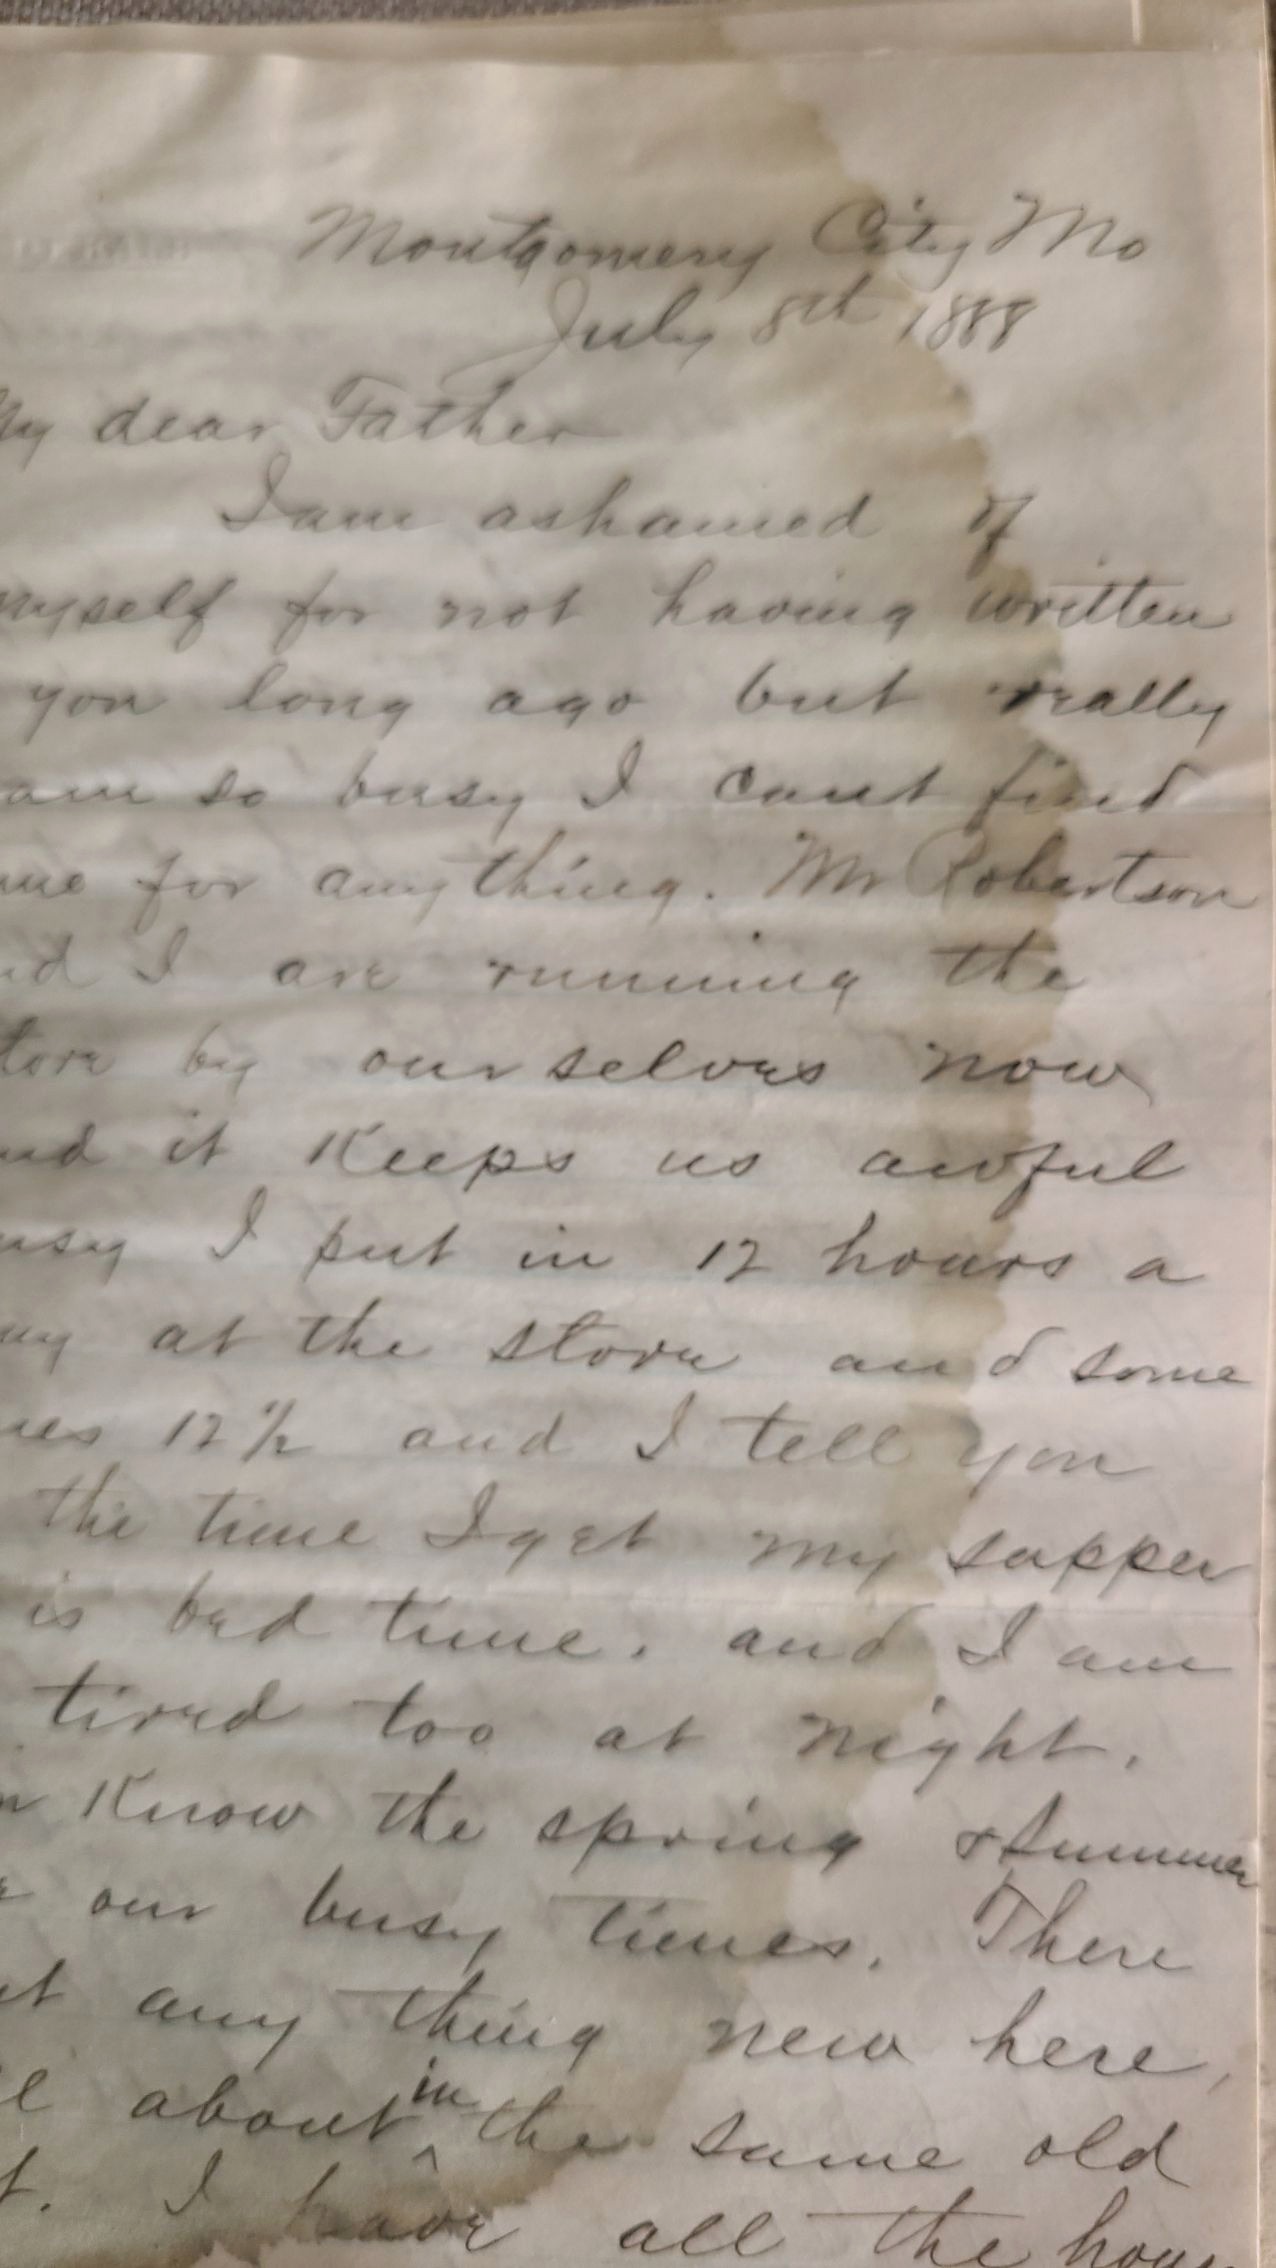 Montgomery City Mo
July 8th 1888
My dear Father
I am ashamed of
myself for not having written
you long ago but really
am so busy I cant find
me for any thing. Mr Robertson
nd I are running the
tore by ourselves now
nd it Keeps us awful
usy I put in 12 hours a
ay at the store and some
mes 12 1/2 and I tell you
the time I get my supper
is bed time. and I am
tired too at night.
Know the spring & summer
our busy times. There
any thing new here,
l about in the same old
t. I have all the hou